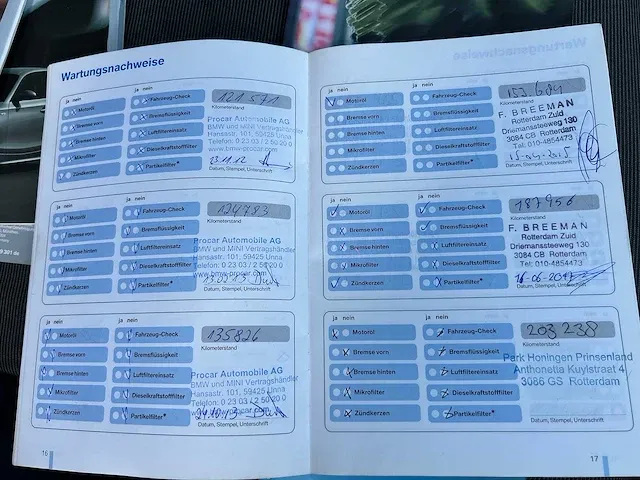 Wartungsnachweise
ja nein
ja nein
Motoröl
Fahrzeug-Check
121.591
Kilometerstand
Bremse vorn
Bremsflüssigkeit
Procar Automobile AG
BMW und MINI Vertragshändler
Bremse hinten
Luftfiltereinsatz
Hansastr. 101, 59425 Unna
Telefon: 0 23 03 / 2 50 20 0
Mikrofilter
Dieselkraftstofffilter
www.bmw-procar.com
23.11.12
Zündkerzen
Partikelfilter*
Datum, Stempel, Unterschrift
ja nein
ja nein
Motoröl
Fahrzeug-Check
124783
Kilometerstand
Bremse vorn
Bremsflüssigkeit
Procar Automobile AG
BMW und MINI Vertragshändler
Bremse hinten
Luftfiltereinsatz
Hansastr. 101, 59425 Unna
Telefon: 0 23 03 / 2 50 20 0
Mikrofilter
Dieselkraftstofffilter
www.bmw-procar.com
Zündkerzen
Partikelfilter*
Datum, Stempel, Unterschrift
ja nein
ja nein
Motoröl
Fahrzeug-Check
135826
Kilometerstand
Bremse vorn
Bremsflüssigkeit
Procar Automobile AG
BMW und MINI Vertragshändler
Bremse hinten
Luftfiltereinsatz
Hansastr. 101, 59425 Unna
Telefon: 0 23 03 / 2 50 20 0
Mikrofilter
Dieselkraftstofffilter
www.bmw-procar.com
Zündkerzen
Partikelfilter*
Datum, Stempel, Unterschrift
16
ja nein
ja nein
Motoröl
Fahrzeug-Check
153.694
Kilometerstand
Bremse vorn
Bremsflüssigkeit
F. BREEMAN
Rotterdam Zuid
Bremse hinten
Luftfiltereinsatz
Driemanssteeweg 130
3084 CB Rotterdam
Mikrofilter
Dieselkraftstofffilter
Tel: 010-4854473
15-04-2015
Zündkerzen
Partikelfilter*
Datum, Stempel, Unterschrift
ja nein
ja nein
Motoröl
Fahrzeug-Check
187956
Kilometerstand
Bremse vorn
Bremsflüssigkeit
F. BREEMAN
Rotterdam Zuid
Bremse hinten
Luftfiltereinsatz
Driemanssteeweg 130
3084 CB Rotterdam
Mikrofilter
Dieselkraftstofffilter
Tel: 010-4854473
Zündkerzen
Partikelfilter*
Datum, Stempel, Unterschrift
ja nein
ja nein
Motoröl
Fahrzeug-Check
203 238
Kilometerstand
Bremse vorn
Bremsflüssigkeit
Park Honingen Prinsenland
Bremse hinten
Luftfiltereinsatz
Anthonetta Kuylstraat 4
3086 GS Rotterdam
Mikrofilter
Dieselkraftstofffilter
Zündkerzen
Partikelfilter*
Datum, Stempel, Unterschrift
17